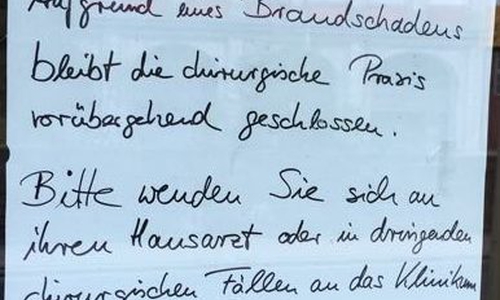 Aufgrund eines Brandschadens
bleibt die chirurgische Praxis
vorübergehend geschlossen.
Bitte wenden Sie sich an
ihren Hausarzt oder in dringenden
chirurgischen Fällen an das Klinikum